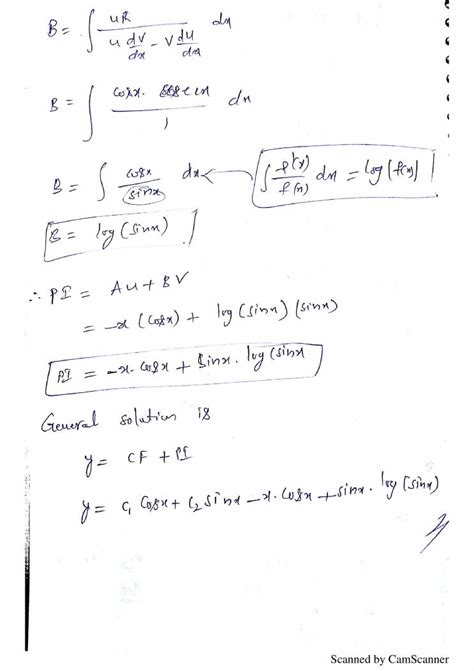 B = ∫ uR / (u dv/dx − v du/dx) dx
B = ∫ cosx. cosecx / 1 dx
B = ∫ cosx / sinx dx
∫ f'(x) / f(x) dx = log|f(x)|
B = log(sinx)
∴ PI = Au + BV
= −x (cosx) + log(sinx) (sinx)
PI = −x. cosx + sinx. log(sinx
General solution is
y = CF + PI
y = C₁ cosx + C₂ sinx − x. cosx + sinx. log(sinx)
Scanned by CamScanner